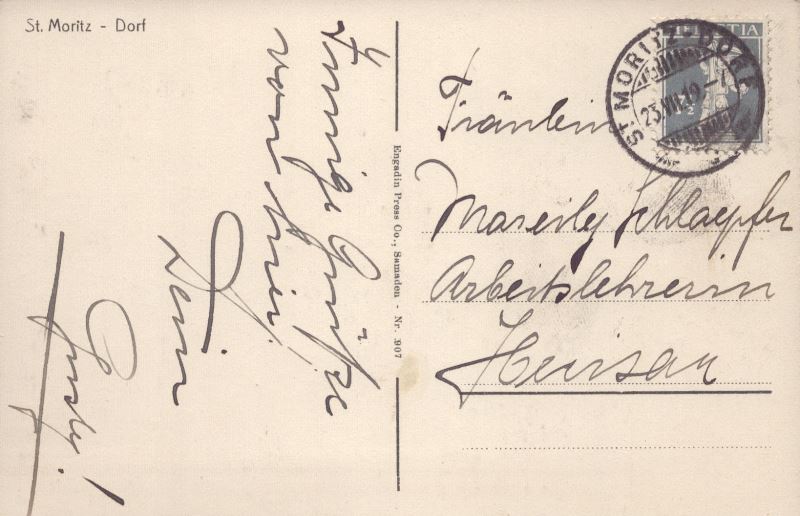 St. Moritz - Dorf
Innige Grüsse
von hier!
Dein
Engadin Press Co., Samaden - Nr. 3907
HELVETIA
ST. MORITZ-DORF
23.VII.12
Fräulein
Mareily Schlaepfer
Arbeitslehrerin
Herisau